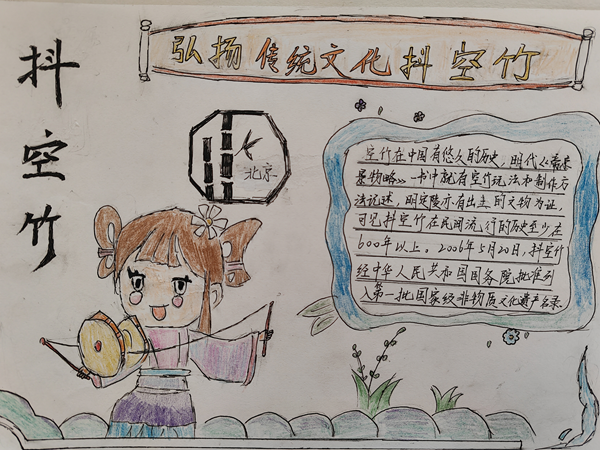 抖空竹
弘扬传统文化抖空竹
北京
空竹在中国有悠久的历史，明代《帝京
景物略》一书中就有空竹玩法和制作方
法记述，明定陵亦有出土的文物为证，
可见抖空竹在民间流行的历史至少在
600年以上。2006年5月20日，抖空竹
经中华人民共和国国务院批准列
入第一批国家级非物质文化遗产名录.